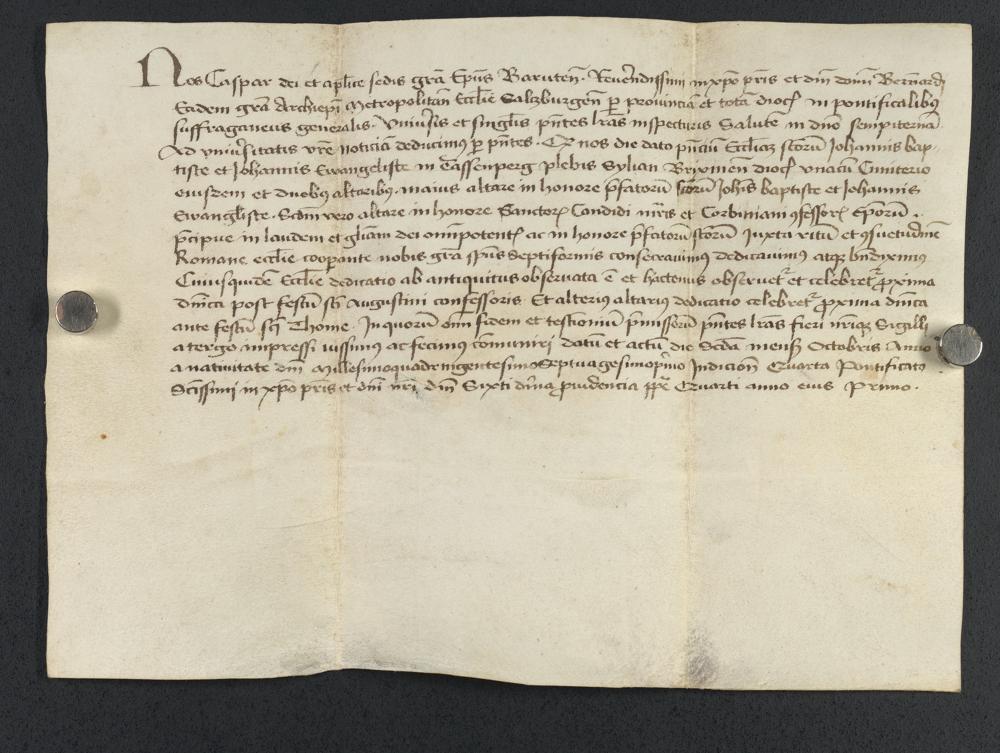 Nos Caspar dei et aplice sedis gra Eps Baruten. Reverendissimi in xpo pris et dni domi Bernardi
Eadem gra Archiepi Metropolitan Ecclie Salzburgen per provincia et tota dioc in pontificalibus
suffraganeus generalis. Universis et singlis pntes lras inspecturis Salute in dno sempiterna
Ad universitatis vre noticia deducimus per pntes. Qz nos die dato pnciu Eccliaz scoru Johannis bap
tiste et Johannis Ewangeliste in plebis Sylian Brixinen dioc unacu Cimiterio
eiusdem et duobus altaribus. maius altare in honore pfatoru scoru Johis baptiste et Johannis
Ewangliste. Scdm vero altare in honore Sanctor Candidi mris et Corbiniani gfessor eporu.
pcipue in laudem et gliam dei omipotent ac in honore pfatoru scoru Juxta ritu et gsuetudine
Romane ecclie coopante nobis gra spus septiformis consecravimus dedicavimus atqz bndiximus
Cuiusquide Ecclie dedicatio ab antiquitus observata e et hactenus observet et celebret pxima
dnica post festu sci Augustini confessoris. Et alterius altarius dedicatio celebret pxima dnica
ante festu sci Thome. In quoru omi fidem et testioniu pmissoru pntes lras fieri nriqz Sigilli
a tergo impressi iussimus ac fecimus comuniri datu et actu die Scda mens Octobris Anno
a nativitate dni Millesimoquadringentesimoseptuagesimoprimo Indicion Quarta Pontificato
Scissimi in xpo pris et dni nri dni Sixti divina providencia ppe Quarti anno eius Primo.